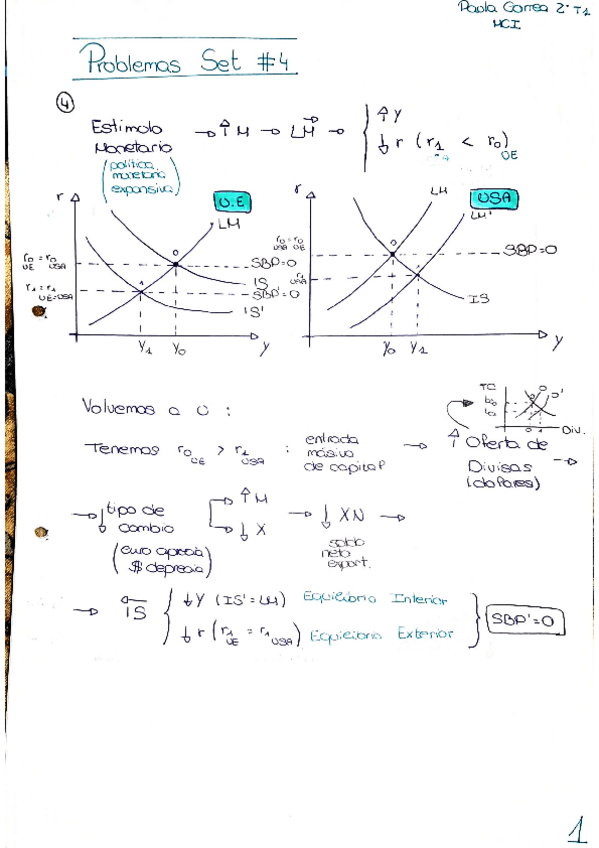 Paula Correa 2º T1
MCI
Problemas Set #4
④
Estímulo
Monetario
(política
monetaria
expansiva)
→ ↑M → LM → { ↑Y
↓r (r1 < r0)
USA UE
r U.E LM
r0 = r0
UE USA
SBP=0
IS
r1 = r1
UE = USA
SBP'=0
IS'
0
1
Y1 Y0 Y
r LM USA
LM'
r0 = r0
USA UE
0
1
SBP=0
IS
Y0 Y1 Y
Volvemos a U:
TC
O
O'
Div.
Tenemos r0 UE > r1 USA : entrada
másiva
de capital
→ ↑ Oferta de
Divisas
(dolares)
→
→ ↓tipo de
cambio
(euro aprecia
$ deprecia)
→ ↑M
→ ↓X
→ ↓ XN →
saldo
neto
export.
→ IS { ↓Y (IS'=LM) Equilibrio Interior
↓r (r1 UE = r1 USA) Equilibrio Exterior } SBP'=0
1